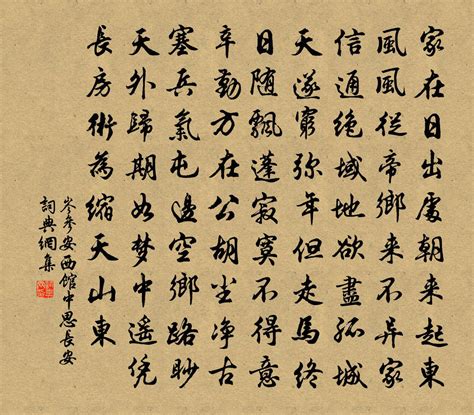 家在日出處朝來起東
風風從帝鄉來不異家
信通絕域地欲盡孤城
天遂窮弥年但走馬終
日随飄蓬寂寞不得意
辛勤方在公胡尘净古
塞兵氣屯邊空鄉路眇
天外歸期如夢中遥凭
長房術為縮天山東
岑参安西館中思長安
詞典網集